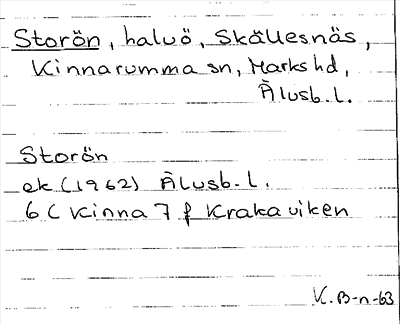 Storön, halvö, Skällesnäs,
Kinnarumma sn, Marks hd,
Älvsb. l.
Storön
ek (1962) Älvsb. l.
6 C Kinna 7 f Krakaviken
K. B-n-63